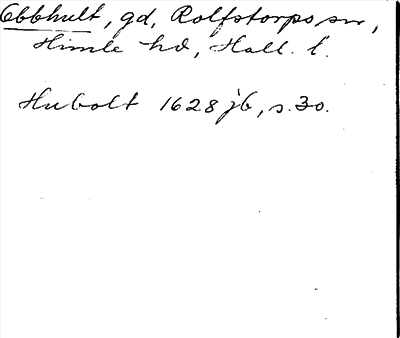 Ebbhult, gd, Rolfstorps sn,
Himle hd, Hall. l.
Hubolt 1628 jb, s. 30.